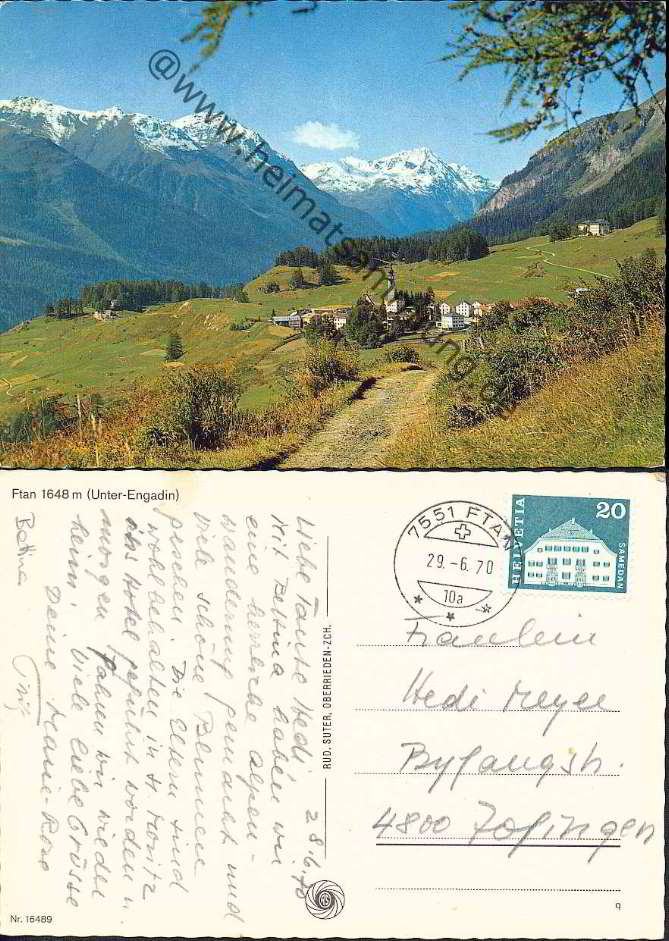 @www.heimatsammlung.de
Ftan 1648 m (Unter-Engadin)
7551 FTAN
29.-6.70
10a
HELVETIA
20
SAMEDAN
Liebe Tante Hedi, 28.6.70
Mit Bettina haben wir
eine herrliche Alpen-
wanderung gemacht und
viele schöne Blumen
gesehen. Die Eltern sind
wohlbehalten in St. Moritz
ins Hotel geführt worden u.
morgen fahren wir wieder
heim. Viele liebe Grüsse
Deine Marie-Rose
Bettina
RUD. SUTER, OBERRIEDEN-ZCH.
Fräulein
Hedi Meyer
Byfangstr.
4800 Zofingen
Nr. 16489
q